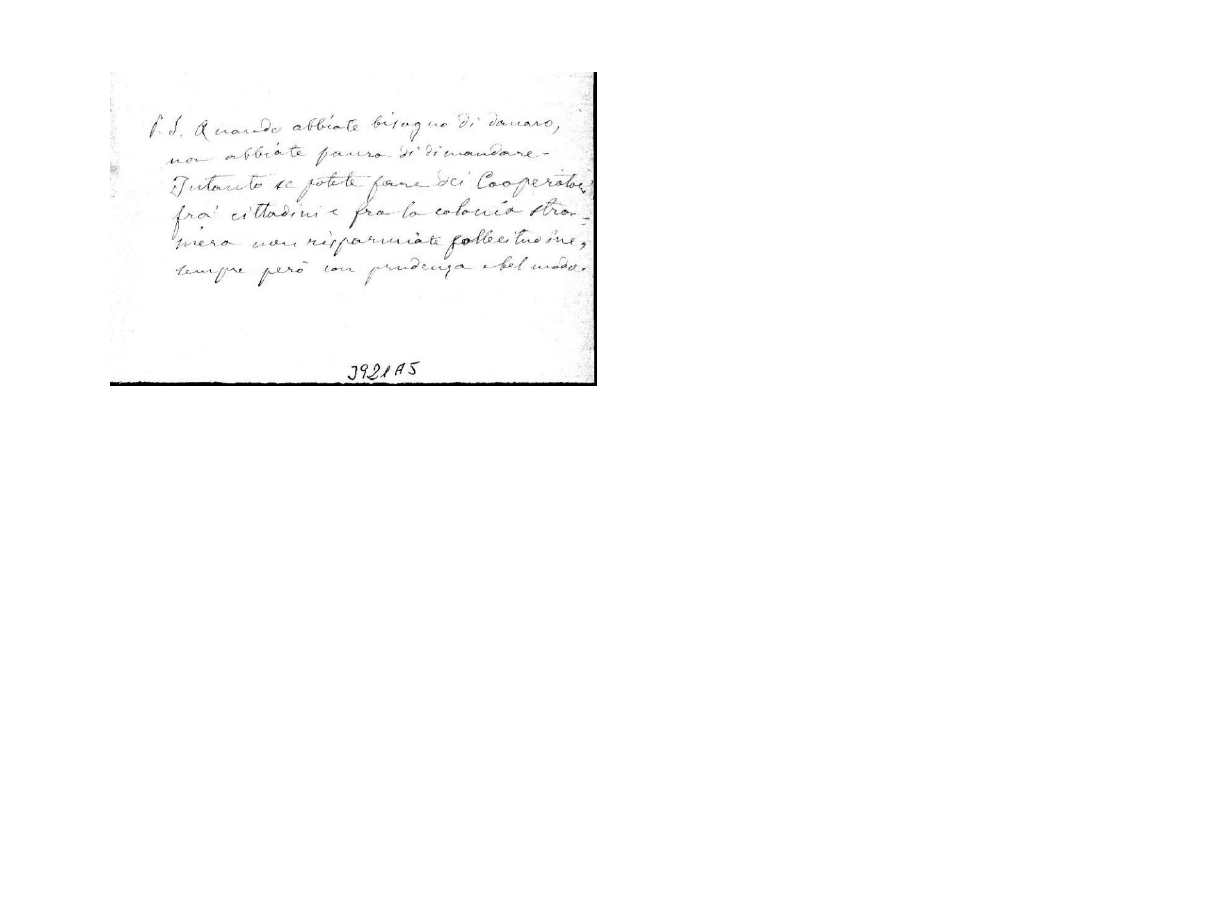 P. S. Quando abbiate bisogno di danaro,
non abbiate paura di dimandare -
Intanto se potete fare dei Cooperatori
fra' cittadini e fra la colonia stra-
niera non risparmiate sollecitudine,
sempre però con prudenza e bel modo.
3921A5